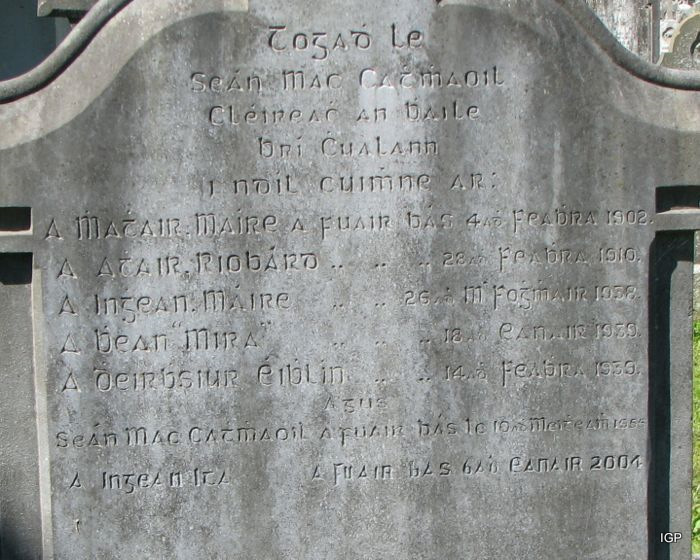 Togaḋ le
Seán Mac Caṫṁaoil
Cléireaċ an Ḃaile
Brí Ċualann
I ndíl Ċuiṁne ar:
A Ṁáṫair, Máire a fuair bás 4aḋ Feaḃra 1902.
A Aṫair, Riobárd .. .. .. 28aḋ Feaḃra, 1910.
A Ingean, Máire .. .. 26aḋ Mí Foġṁair 1938.
A Ḃean "Mira" .. .. 18aḋ Eanair 1939.
A Ḋeirḃsiúr Éiḃlín .. .. 14aḋ Feaḃra 1939.
Agus
Seán Mac Caṫṁaoil a fuair bás le 10aḋ Meiṫeaṁ
A Ingean Ita a fuair bás 6aḋ Eanair 2004
IGP